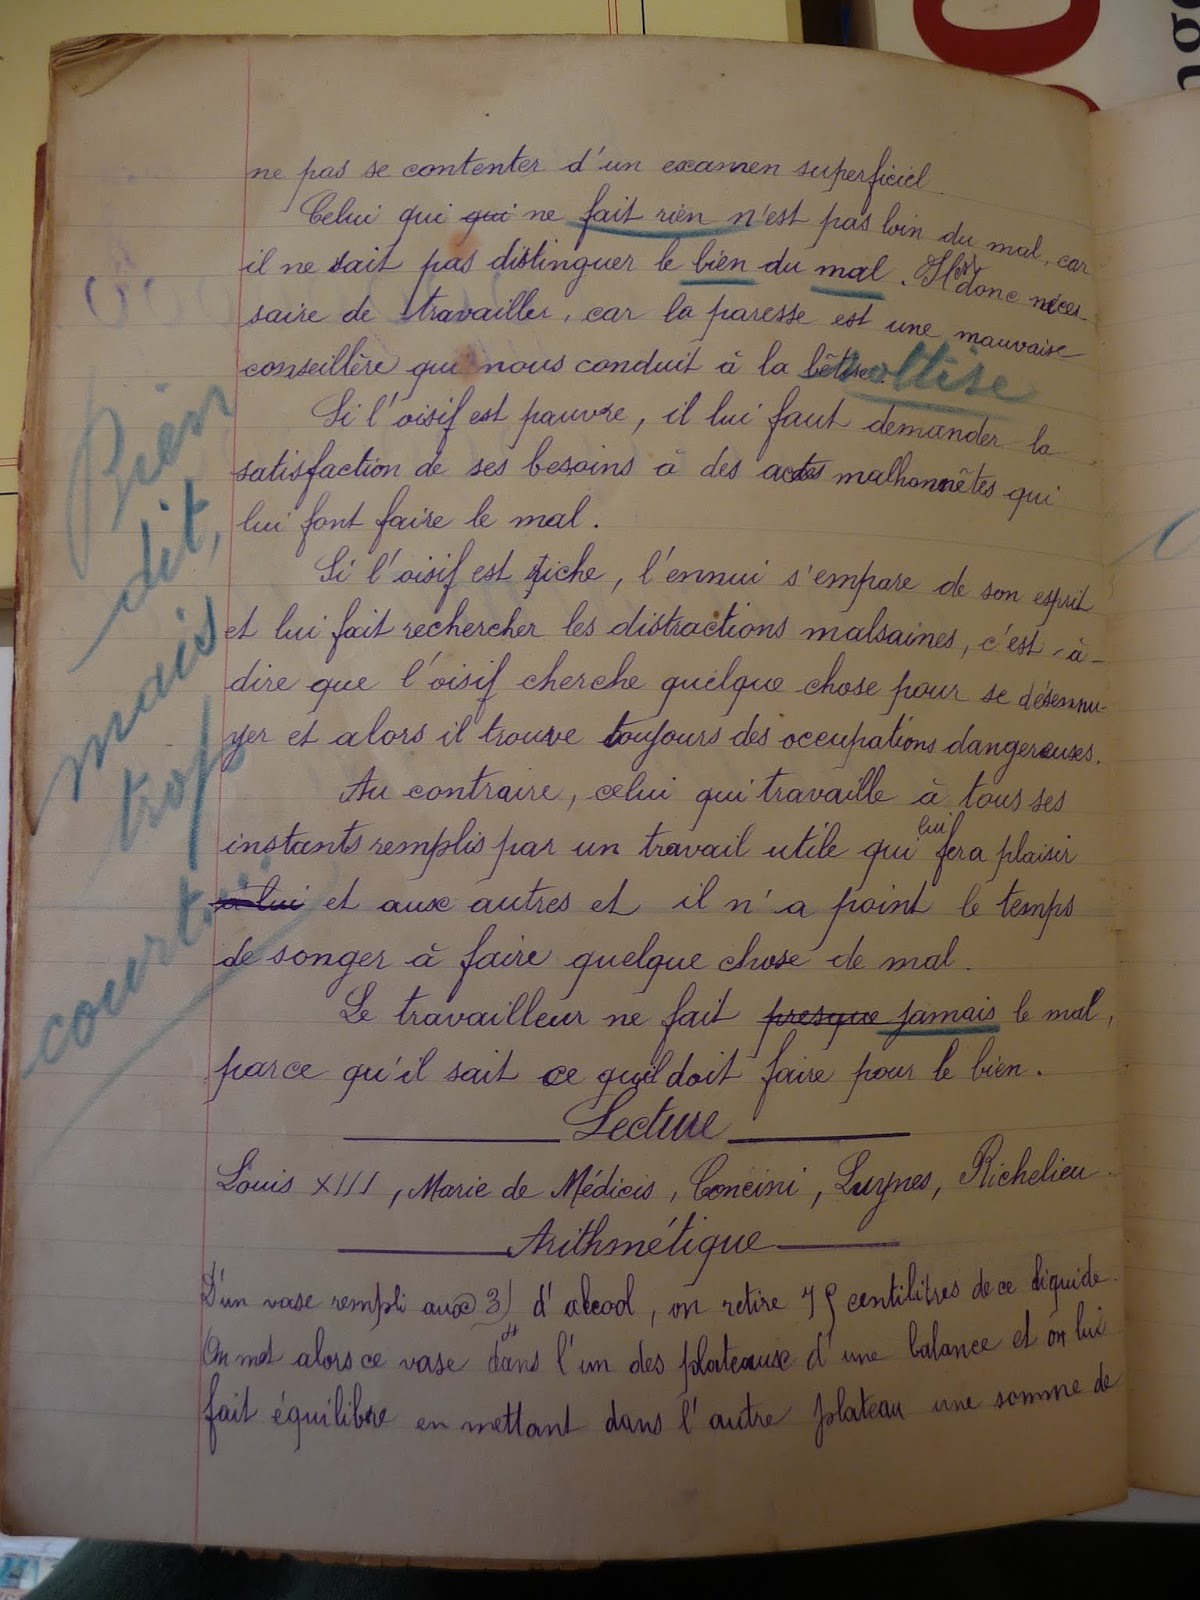 ne pas se contenter d'un examen superficiel.
Celui qui qui ne fait rien n'est pas loin du mal, car
il ne sait pas distinguer le bien du mal. Il est donc néces-
saire de travailler, car la paresse est une mauvaise
conseillère qui nous conduit à la bêtise. sottise
Si l'oisif est pauvre, il lui faut demander la
satisfaction de ses besoins à des actes malhonnêtes qui
lui font faire le mal.
Si l'oisif est riche, l'ennui s'empare de son esprit
et lui fait rechercher les distractions malsaines, c'est-à-
dire que l'oisif cherche quelque chose pour se désennu-
yer et alors il trouve toujours des occupations dangereuses.
Au contraire, celui qui travaille à tous ses
instants remplis par un travail utile qui lui fera plaisir
à lui et aux autres et il n'a point le temps
de songer à faire quelque chose de mal.
Le travailleur ne fait presque jamais le mal,
parce qu'il sait ce qu'il doit faire pour le bien.
Lecture
Louis XIII, Marie de Médicis, Concini, Luynes, Richelieu.
Arithmétique
D'un vase rempli aux d'alcool, on retire centilitres de ce liquide.
On met alors ce vase dans l'un des plateaux d'une balance et on lui
fait équilibre en mettant dans l'autre plateau une somme de
Bien
dit,
mais
trop
court...